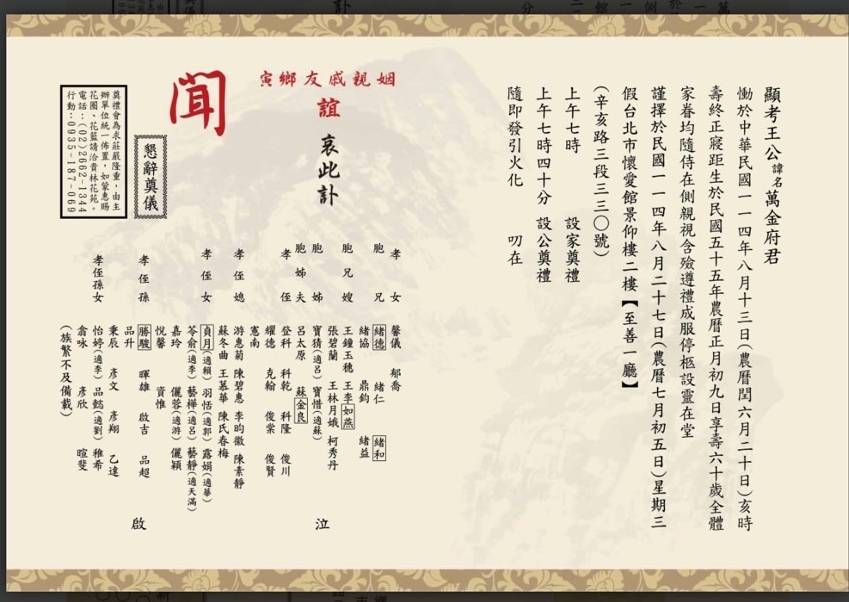 顯考王公諱名萬金府君
慟於中華民國一一四年八月十三日(農曆閏六月二十日)亥時
壽終正寢距生於民國五十五年農曆正月初九日享壽六十歲全體
家眷均隨侍在側親視含殮遵禮成服停柩設靈在堂
謹擇於民國一一四年八月二十七日(農曆七月初五日)星期三
假台北市懷愛館景仰樓二樓【至善一廳】
(辛亥路三段三三○號)
上午七時 設家奠禮
上午七時四十分 設公奠禮
隨即發引火化 叨在
姻親戚友鄉寅
誼 哀此訃
聞
孝女 馨儀 郁喬
胞兄 緒德 緒仁 緒和
緒協 鼎鈞 緒益
胞兄嫂 王鐘玉穗 王李如燕
張碧蘭 王林月娥 柯秀丹
胞姊 寶猜(適呂) 寶惜(適蘇)
胞姊夫 呂太原 蘇金良
孝侄 登科 科乾 科隆 俊川
耀德 克翰 俊棠 俊賢
憲南
孝侄媳 游惠菊 陳碧惠 李昀徽 陳素靜
蘇冬曲 王慕華 陳氏春梅
孝侄女 貞月(適賴) 羽恬(適郭) 露娟(適華)
苓俞(適李) 藝樺(適呂) 藝靜(適天滿)
嘉玲 儷蓉(適游) 儷穎
悅馨 資惟
孝侄孫 勝駿 暉雄 啟吉 品超
品升
秉辰 彥文 彥翔 乙達
孝侄孫女 怡婷(適李) 品懿(適劉) 雅希
翕咏 彥欣 暄斐
(族繁不及備載)
泣
啟
懇辭奠儀
奠禮會為求莊嚴隆重,由主
辦單位統一佈置,如蒙惠賜
花圈、花籃請洽青林花苑。
電話:(02)2662-1344
行動:0935-187-069